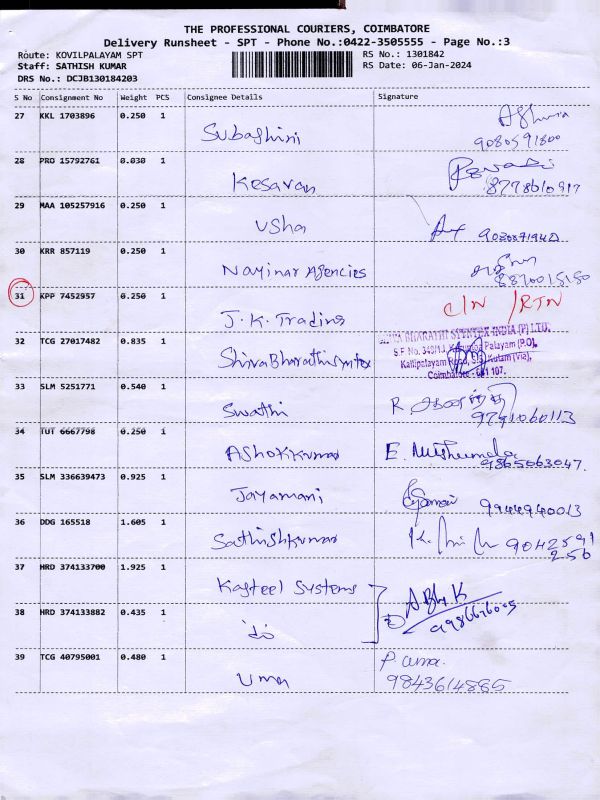 THE PROFESSIONAL COURIERS, COIMBATORE
Delivery Runsheet - SPT - Phone No.:0422-3505555 - Page No.:3
Route: KOVILPALAYAM SPT
RS No.: 1301842
Staff: SATHISH KUMAR
RS Date: 06-Jan-2024
DRS No.: DCJB130184203
S No Consignment No Weight PCS Consignee Details Signature
27 KKL 1703896 0.250 1 Subashini
9080591800
28 PRO 15792761 0.030 1 Kesavan
8778610917
29 MAA 105257916 0.250 1 Usha
30 KRR 857119 0.250 1 Nayinar Agencies
8870015150
31 KPP 7452957 0.250 1 J.K. Trading C/N /RTN
32 TCG 27017482 0.835 1
BHARATHI SPINTEX INDIA (P) LTD.
S.F No. 340/13, Palayam (P.O),
Kallipalayam Road, Kulam (Via),
Coimbatore - 641 107.
33 SLM 5251771 0.540 1 Swathi R
9791060113
34 TUT 6667798 0.250 1 Ashokkumar E.
9865063047.
35 SLM 336639473 0.925 1 Jayamani 9944940013
36 DDG 165518 1.605 1 Sathishkumar K. 9042591
256
37 HRD 374133700 1.925 1 Kasteel Systems
38 HRD 374133882 0.435 1 do
39 TCG 40795001 0.480 1 Uma P. uma.
9843614885